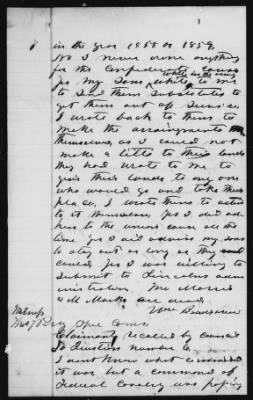 in the year 1858 or 1859,
No I never done anything
for the Confederate cause
yes my Sons while in the army wrote to me
to Send them Substitutes to
get them out of Service
I wrote back to them to
make the arraingments
themselves, as I could not
make a title to their lands
they had wrote to me to
give their lands to any one
who would go and take their
place, I wrote them to attend
to it themselves yes I did ad
here to the union cause all the
time yes I did advise my sons
to stay out as long as they
could yes I was willing to
submit to Lincolns adm
inistration. Mr Morris
& Marks are dead.
Wm
Witness
Claimant recalled by counsel
To Question number
I dont know what command
it was but a command of
Federal Cavalry was passing